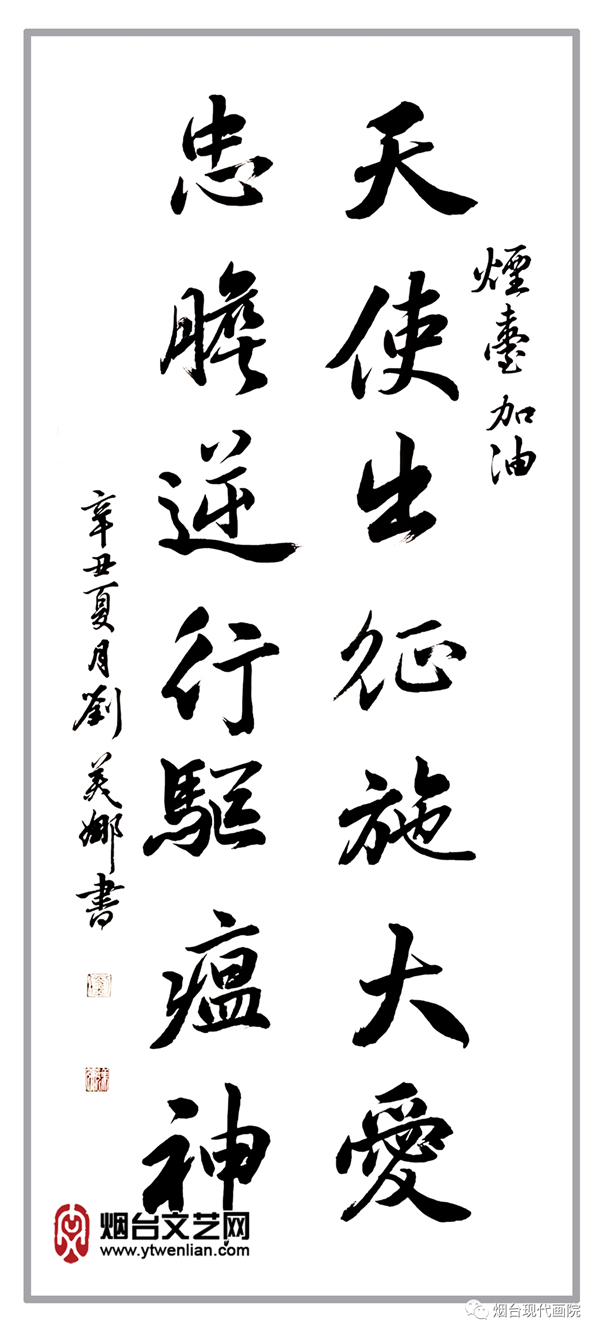 煙臺加油
天使出征施大愛
忠膽逆行驅瘟神
辛丑夏月劉美娜書
烟台文艺网
www.ytwenlian.com
烟台现代画院